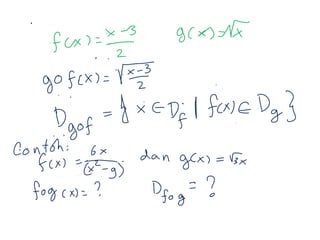 f(x) = x-3/2 g(x) = √x
gof(x) = √(x-3/2)
D_gof = { x ∈ D_f | f(x) ∈ D_g }
Contoh:
f(x) = 6x/(x²-9) dan g(x) = √3x
fog(x) = ? D_fog = ?